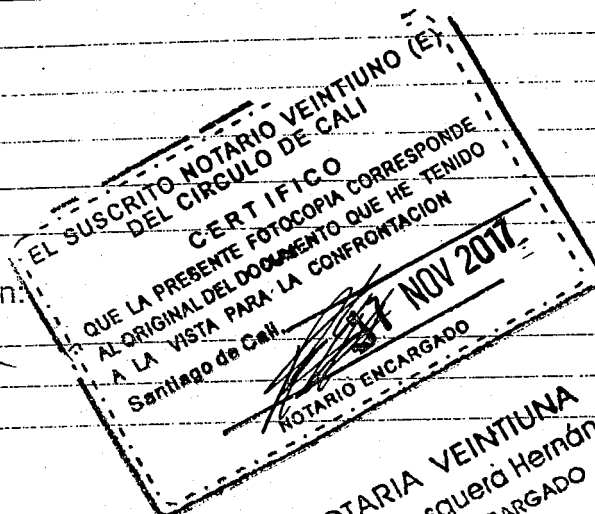 EL SUSCRITO NOTARIO VEINTIUNO (E)
DEL CIRCULO DE CALI
CERTIFICO
QUE LA PRESENTE FOTOCOPIA CORRESPONDE
AL ORIGINAL DEL DOCUMENTO QUE HE TENIDO
A LA VISTA PARA LA CONFRONTACION
Santiago de Cali,
NOV 2017
NOTARIO ENCARGADO
n.
TARIA VEINTIUNA
squera Hernán
ARGADO